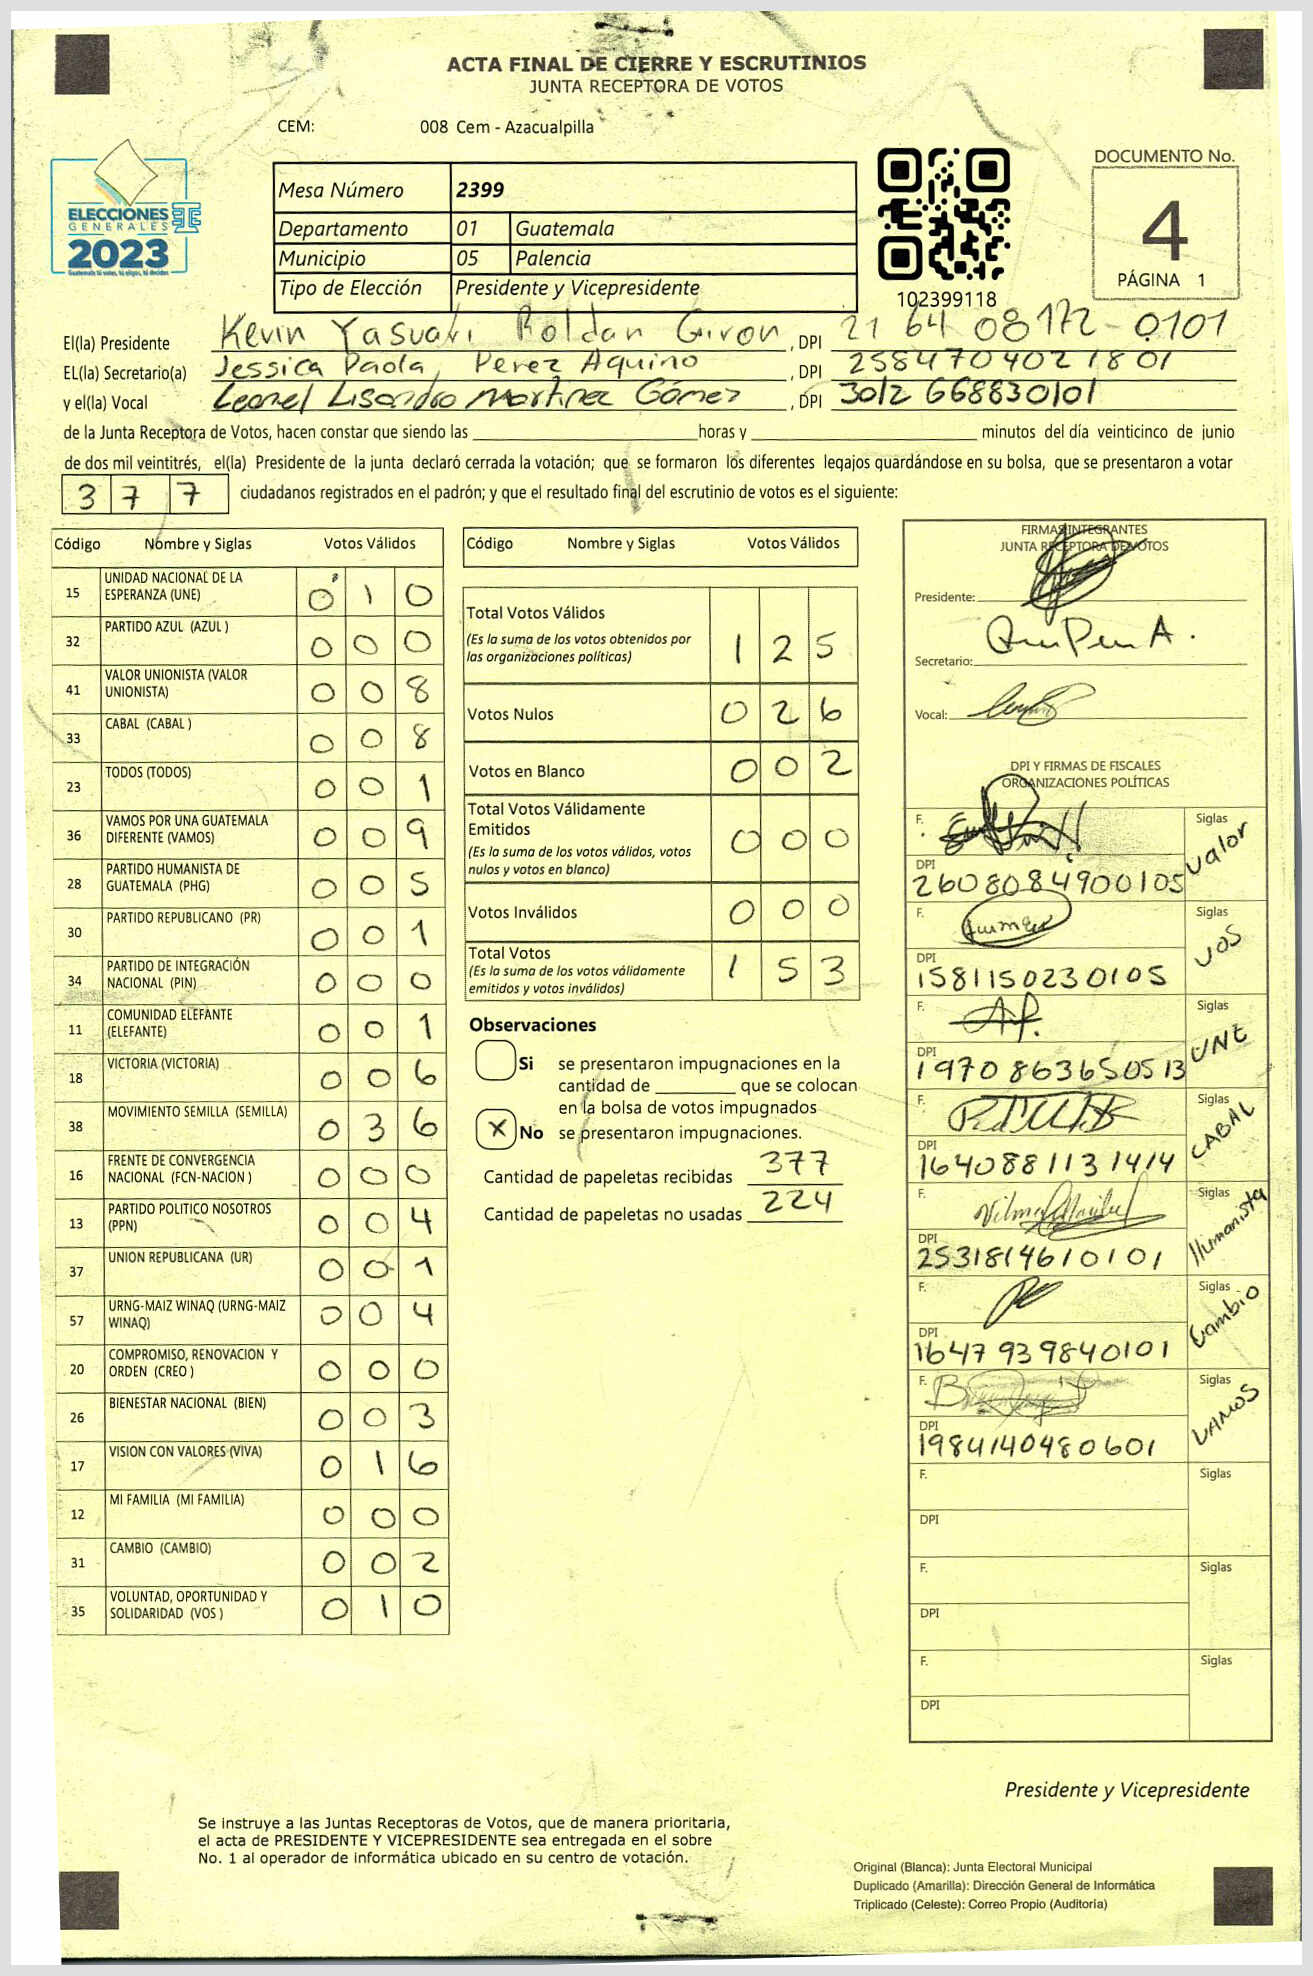 ACTA FINAL DE CIERRE Y ESCRUTINIOS
JUNTA RECEPTORA DE VOTOS
CEM: 008 Cem - Azacualpilla
ELECCIONES
GENERALES
2023
Mesa Número 2399
Departamento 01 Guatemala
Municipio 05 Palencia
Tipo de Elección Presidente y Vicepresidente
102399118
DOCUMENTO No.
4
PÁGINA 1
El(la) Presidente Kevin Yasuari Roldan Giron, DPI 21 64 08172-0101
EL(la) Secretario(a) Jessica Paola Perez Aquino, DPI 2584704021801
y el(la) Vocal Leonel Lisandro Martinez Gómez, DPI 3012 668830101
de la Junta Receptora de Votos, hacen constar que siendo las ____ horas y ____ minutos del día veinticinco de junio
de dos mil veintitrés, el(la) Presidente de la junta declaró cerrada la votación; que se formaron los diferentes legajos guardándose en su bolsa, que se presentaron a votar
3 7 7 ciudadanos registrados en el padrón; y que el resultado final del escrutinio de votos es el siguiente:
Código Nombre y Siglas Votos Válidos
15 UNIDAD NACIONAL DE LA ESPERANZA (UNE) 0 1 0
32 PARTIDO AZUL (AZUL ) 0 0 0
41 VALOR UNIONISTA (VALOR UNIONISTA) 0 0 8
33 CABAL (CABAL ) 0 0 8
23 TODOS (TODOS) 0 0 1
36 VAMOS POR UNA GUATEMALA DIFERENTE (VAMOS) 0 0 9
28 PARTIDO HUMANISTA DE GUATEMALA (PHG) 0 0 5
30 PARTIDO REPUBLICANO (PR) 0 0 1
34 PARTIDO DE INTEGRACIÓN NACIONAL (PIN) 0 0 0
11 COMUNIDAD ELEFANTE (ELEFANTE) 0 0 1
18 VICTORIA (VICTORIA) 0 0 6
38 MOVIMIENTO SEMILLA (SEMILLA) 0 3 6
16 FRENTE DE CONVERGENCIA NACIONAL (FCN-NACION ) 0 0 0
13 PARTIDO POLITICO NOSOTROS (PPN) 0 0 4
37 UNION REPUBLICANA (UR) 0 0 1
57 URNG-MAIZ WINAQ (URNG-MAIZ WINAQ) 0 0 4
20 COMPROMISO, RENOVACION Y ORDEN (CREO ) 0 0 0
26 BIENESTAR NACIONAL (BIEN) 0 0 3
17 VISION CON VALORES (VIVA) 0 1 6
12 MI FAMILIA (MI FAMILIA) 0 0 0
31 CAMBIO (CAMBIO) 0 0 2
35 VOLUNTAD, OPORTUNIDAD Y SOLIDARIDAD (VOS ) 0 1 0
Código Nombre y Siglas Votos Válidos
Total Votos Válidos 1 2 5
(Es la suma de los votos obtenidos por
las organizaciones políticas)
Votos Nulos 0 2 6
Votos en Blanco 0 0 2
Total Votos Válidamente
Emitidos 0 0 0
(Es la suma de los votos válidos, votos
nulos y votos en blanco)
Votos Inválidos 0 0 0
Total Votos 1 5 3
(Es la suma de los votos válidamente
emitidos y votos inválidos)
Observaciones
Si se presentaron impugnaciones en la
cantidad de ____ que se colocan
en la bolsa de votos impugnados
X No se presentaron impugnaciones.
Cantidad de papeletas recibidas 377
Cantidad de papeletas no usadas 224
FIRMAS INTEGRANTES
JUNTA RECEPTORA DE VOTOS
Presidente:
Secretario:
Vocal:
DPI Y FIRMAS DE FISCALES
ORGANIZACIONES POLÍTICAS
F. Siglas Valor
DPI 2608084900105
F. Siglas VOS
DPI 1581150230105
F. Siglas UNE
DPI 1970863650513
F. Siglas CABAL
DPI 1640881131414
F. Siglas Humanista
DPI 2531814610101
F. Siglas Cambio
DPI 1647939840101
F. Siglas VAMOS
DPI 1984140480601
F. Siglas
DPI
F. Siglas
DPI
F. Siglas
DPI
Presidente y Vicepresidente
Se instruye a las Juntas Receptoras de Votos, que de manera prioritaria,
el acta de PRESIDENTE Y VICEPRESIDENTE sea entregada en el sobre
No. 1 al operador de informática ubicado en su centro de votación.
Original (Blanca): Junta Electoral Municipal
Duplicado (Amarilla): Dirección General de Informática
Triplicado (Celeste): Correo Propio (Auditoría)